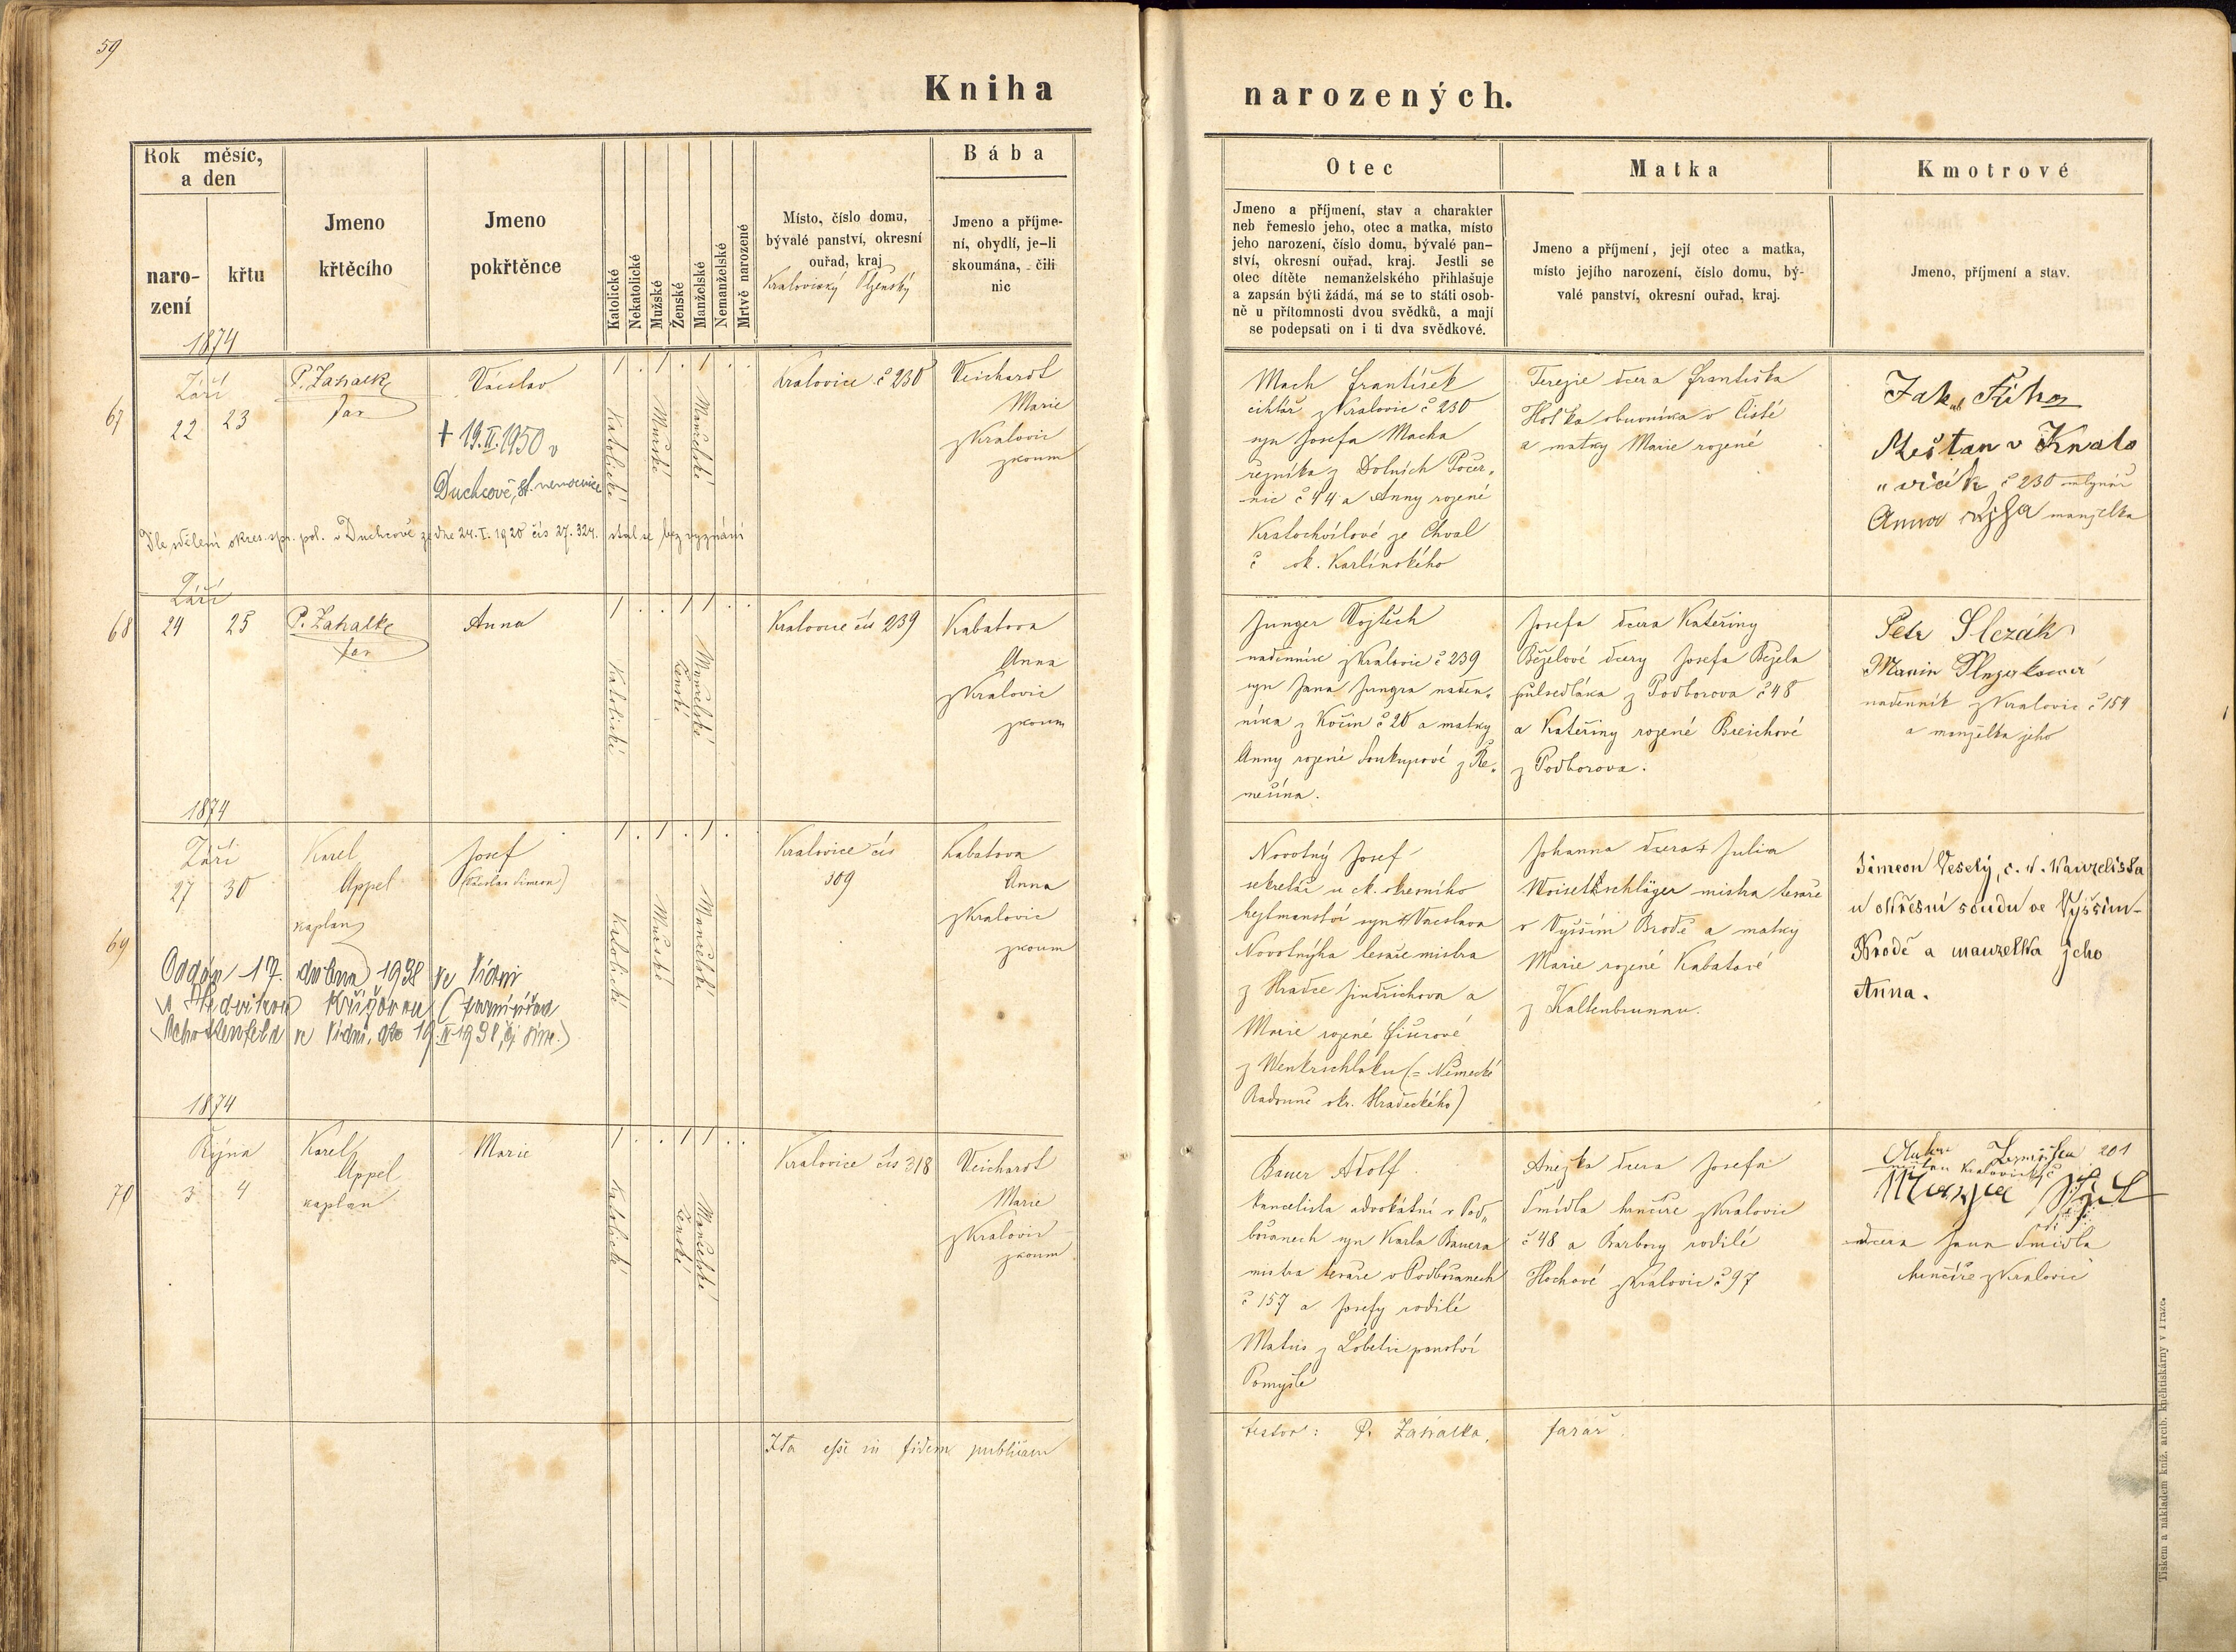 59
Kniha
narozených.
Rok měsíc,
a den
naro-
zení
křtu
1874
Jmeno
křtěcího
Jmeno
pokřtěnce
Katolické
Nekatolické
Mužské
Ženské
Manželské
Nemanželské
Mrtvě narozené
Místo, číslo domu,
bývalé panství, okresní
ouřad, kraj
Kralovický Plzenský
Bába
Jmeno a příjme-
ní, obydlí, je-li
skoumána, - čili
nic
Otec
Jmeno a příjmení, stav a charakter
neb řemeslo jeho, otec a matka, místo
jeho narození, číslo domu, bývalé pan-
ství, okresní ouřad, kraj. Jestli se
otec dítěte nemanželského přihlašuje
a zapsán býti žádá, má se to státi osob-
ně u přítomnosti dvou svědků, a mají
se podepsati on i ti dva svědkové.
Matka
Jmeno a příjmení, její otec a matka,
místo jejího narození, číslo domu, bý-
valé panství, okresní ouřad, kraj.
Kmotrové
Jmeno, příjmení a stav.
67
Září
22 23
P. Zahalka
far
Václav
+ 19.II.1950 v
Duchcově, st. nemocnice
Dle sdělení okres. spr. pol. v Duchcově ze dne 24. I. 1920 čís 27.324. stal se bez vyznání
Katolické
Mužské
Manželské
Kralovice č 230
Veichardt
Marie
z Kralovic
zkoum
Mach František
cihlář z Kralovic č 230
syn Josefa Macha
řezníka z Dolních Počer-
nic č 44 a Anny rozené
Kratochvílové ze Chval
č ok. Karlínského
Terezie dcera Františka
obuvníka v Čisté
a matky Marie rozené
Jakub Fiha
Měštan v Kralo
"vicích č 230 mlynář
Anna Fiha manželka
68
Září
24 25
P. Zahalka
far
Anna
Katolické
Ženské
Manželské
Kralovice čís 239
Kabatova
Anna
z Kralovic
zkoum
Junger Vojtěch
nadenník z Kralovic č 239
syn Jana Jungra naden-
níka z Kočin č 20 a matky
Anny rozené Soukupové z Re-
mešína.
Josefa dcera Kateřiny
Bězelové dcery Josefa Bězela
pulsedláka z Podborova č 48
a Kateřiny rozené Breichové
z Podborova.
Petr Slezák
Marie Slezaková
nadenník z Kralovic č 154
a manželka jeho
1874
69
Září
27 30
Karel
Appel
kaplan
Josef
(Václav Simeon)
Oddán 17. dubna 1938 ve Vídni
s Hedvikou (farní úřad
Schottenfeld ve Vídni, dto 19.IV.1938,
Katolické
Mužské
Manželské
Kralovice čís
309
Kabatova
Anna
z Kralovic
zkoum
Novotný Josef
sekretář u ck. okresního
hejtmanství syn + Vácslava
Novotnýho tesaře mistra
z Hradce Jindřichova a
Marie rozené Fiurové
z Wenkerschlaku (= Německé
Radouně okr. Hradeckého)
Johanna dcera + Julia
Woisetschläger mistra tesaře
v Vyšším Brodě a matky
Marie rozené Kabatové
z Kaltenbrunnu.
Simeon Veselý, c. k. kancelista
u okresní soudu ve Vyšším-
Brodě a manzelka jeho
Anna.
1874
70
Října
3 4
Karel
Appel
kaplan
Marie
Katolické
Ženské
Manželské
Kralovice čís 318
Veichardt
Marie
z Kralovic
zkoum
Bauer Adolf
kancelista advokátní v Pod-
bořanech syn Karla Bauera
mistra tesaře v Podbořanech
č 157 a Josefy rodilé
Matus z Lobetic panství
Pomyšle
Anežka dcera Josefa
Šmídla hrnčíře z Kralovic
č 48 a Barbory rodilé
Hochové z Kralovic č 97
201
měštan Kralovický č
dcera Jana Šmidla
hrnčíře z Kralovic
Ita esse in fidem publicam
testor: P. Zahalka, farář
Tiskem a nákladem kníž. arcib. knihtiskárny v Praze.